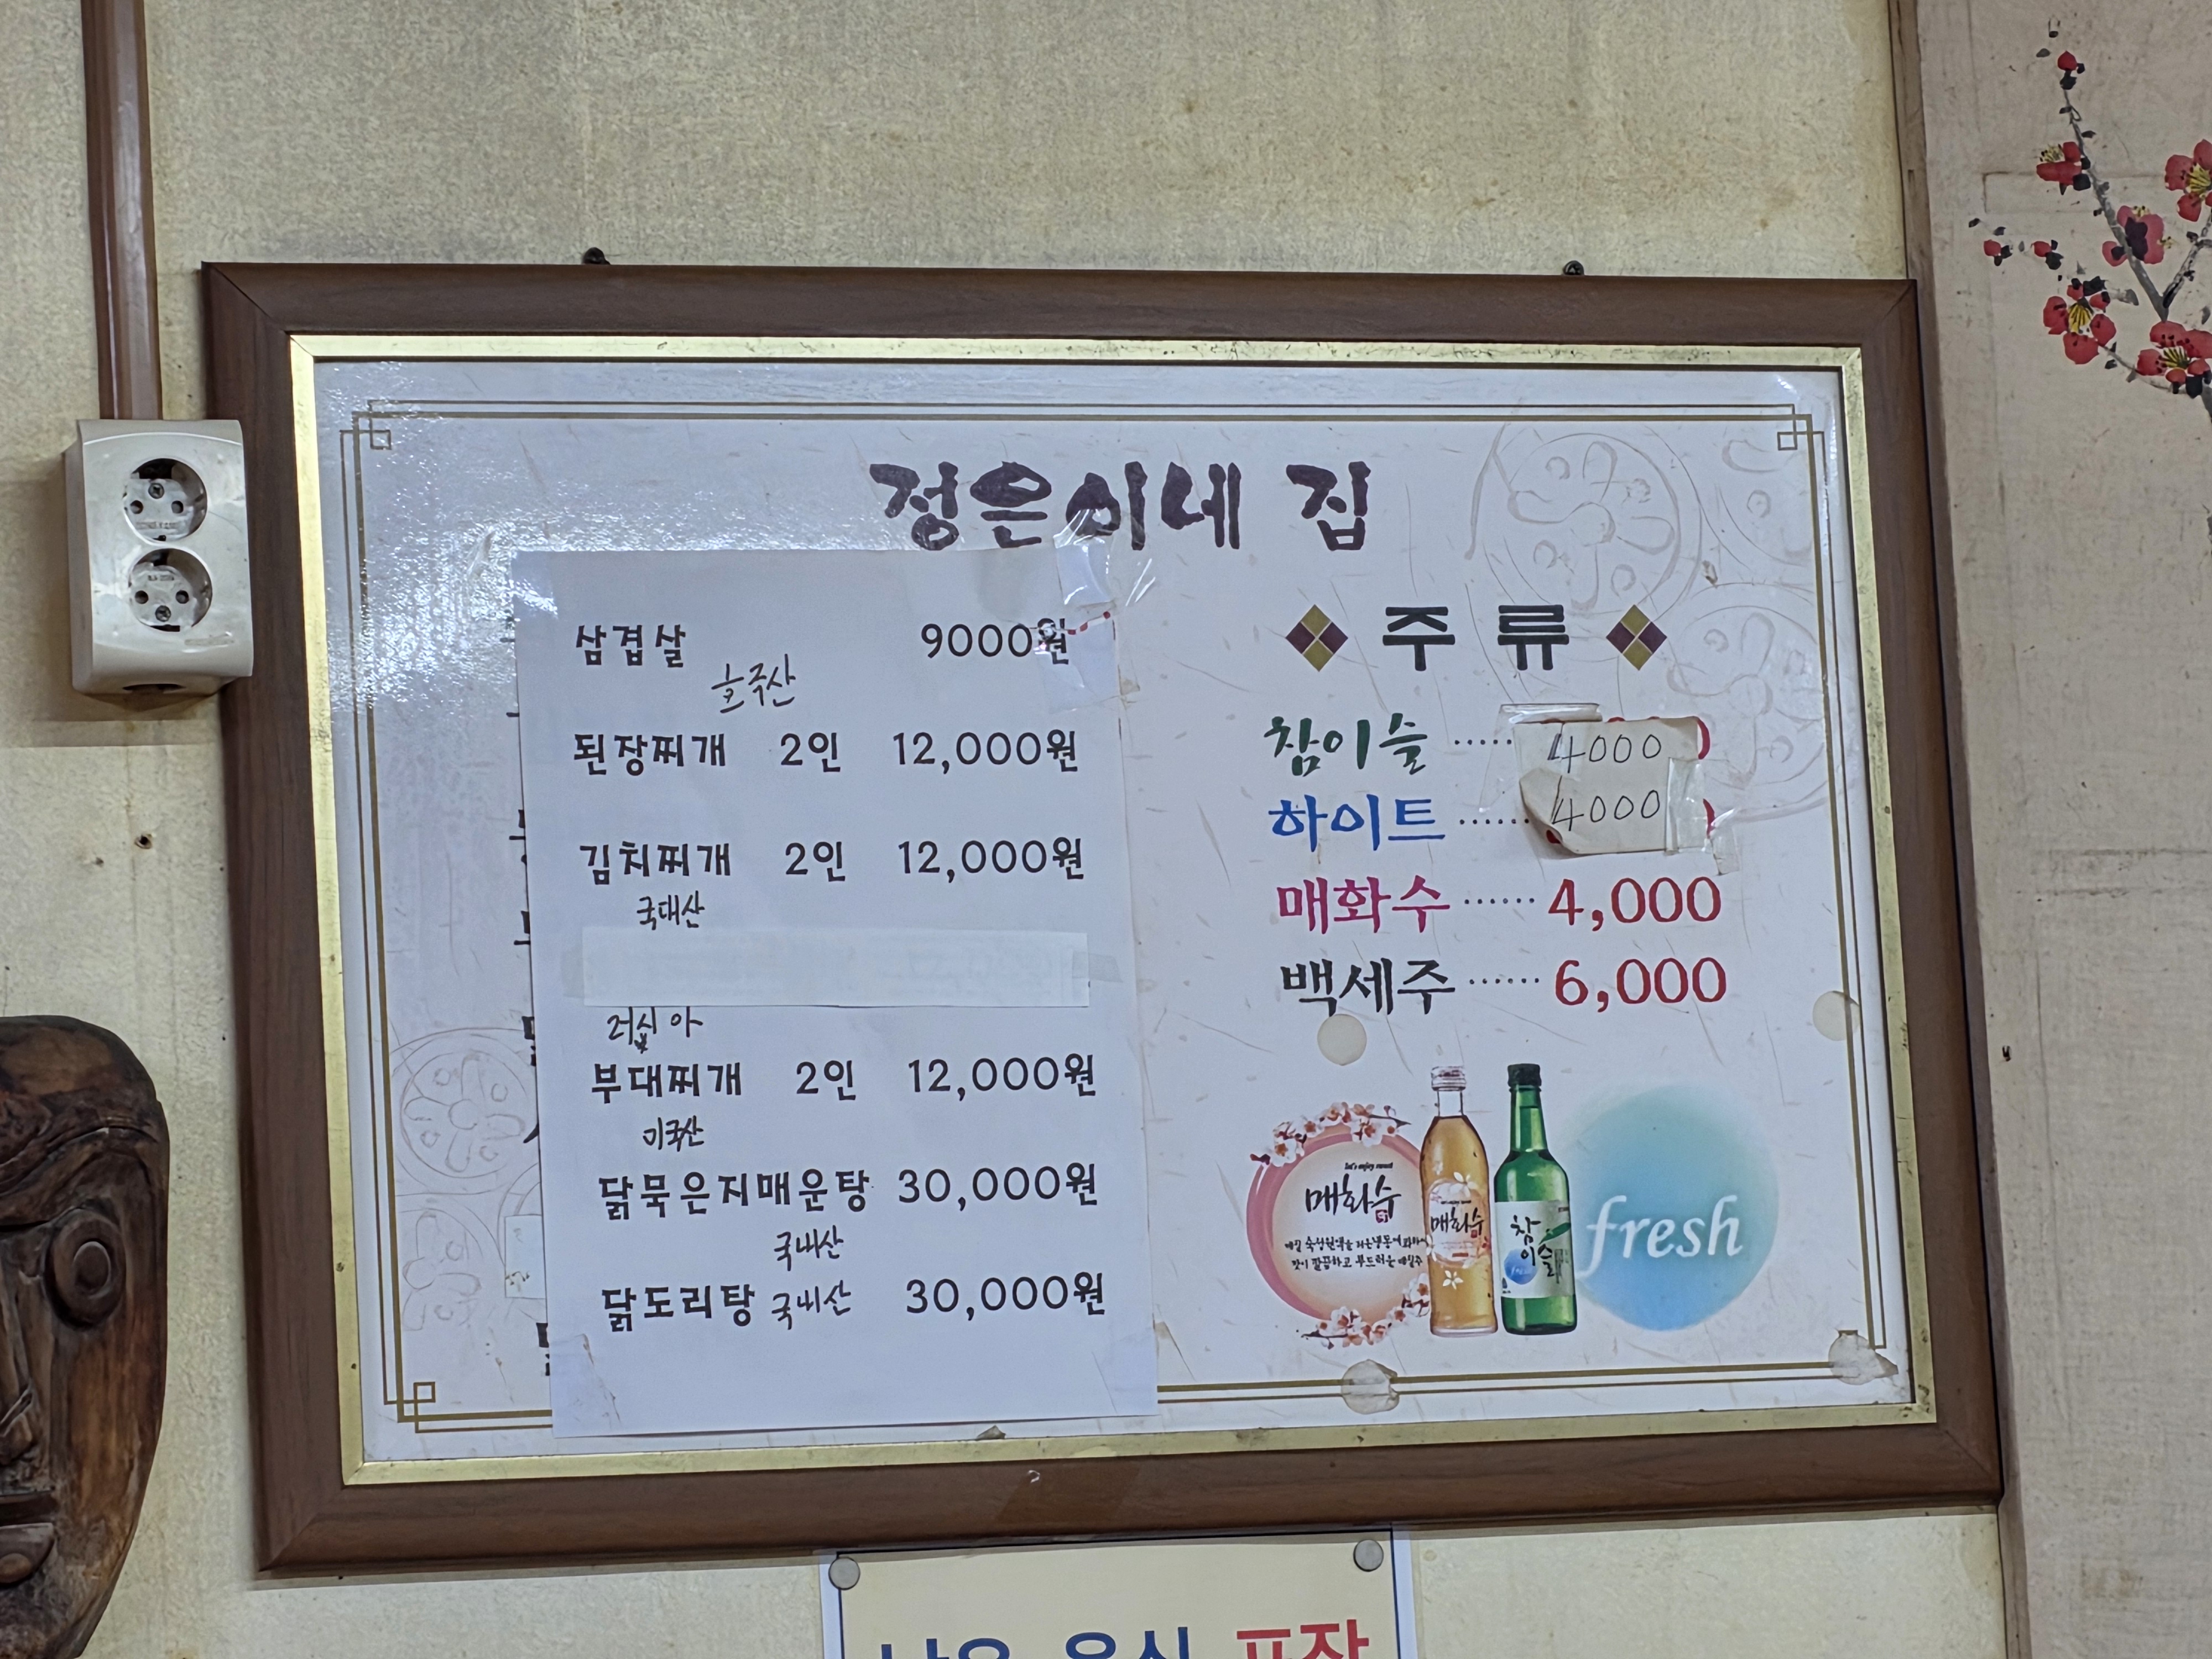 정은이네 집
삼겹살 9000원
된장찌개 2인 12,000원
김치찌개 2인 12,000원
국대산
러십아
부대찌개 2인 12,000원
미국산
닭묵은지매운탕 30,000원
국내산
닭도리탕 국내산 30,000원
주 류
참이슬 ······ 4000
하이트 ······ 4000
매화수 ······ 4,000
백세주 ······ 6,000
let's enjoy sweet
매화수
맛이 깔끔하고 부드러운 매실주
매화수
참이슬
fresh
음식 포장